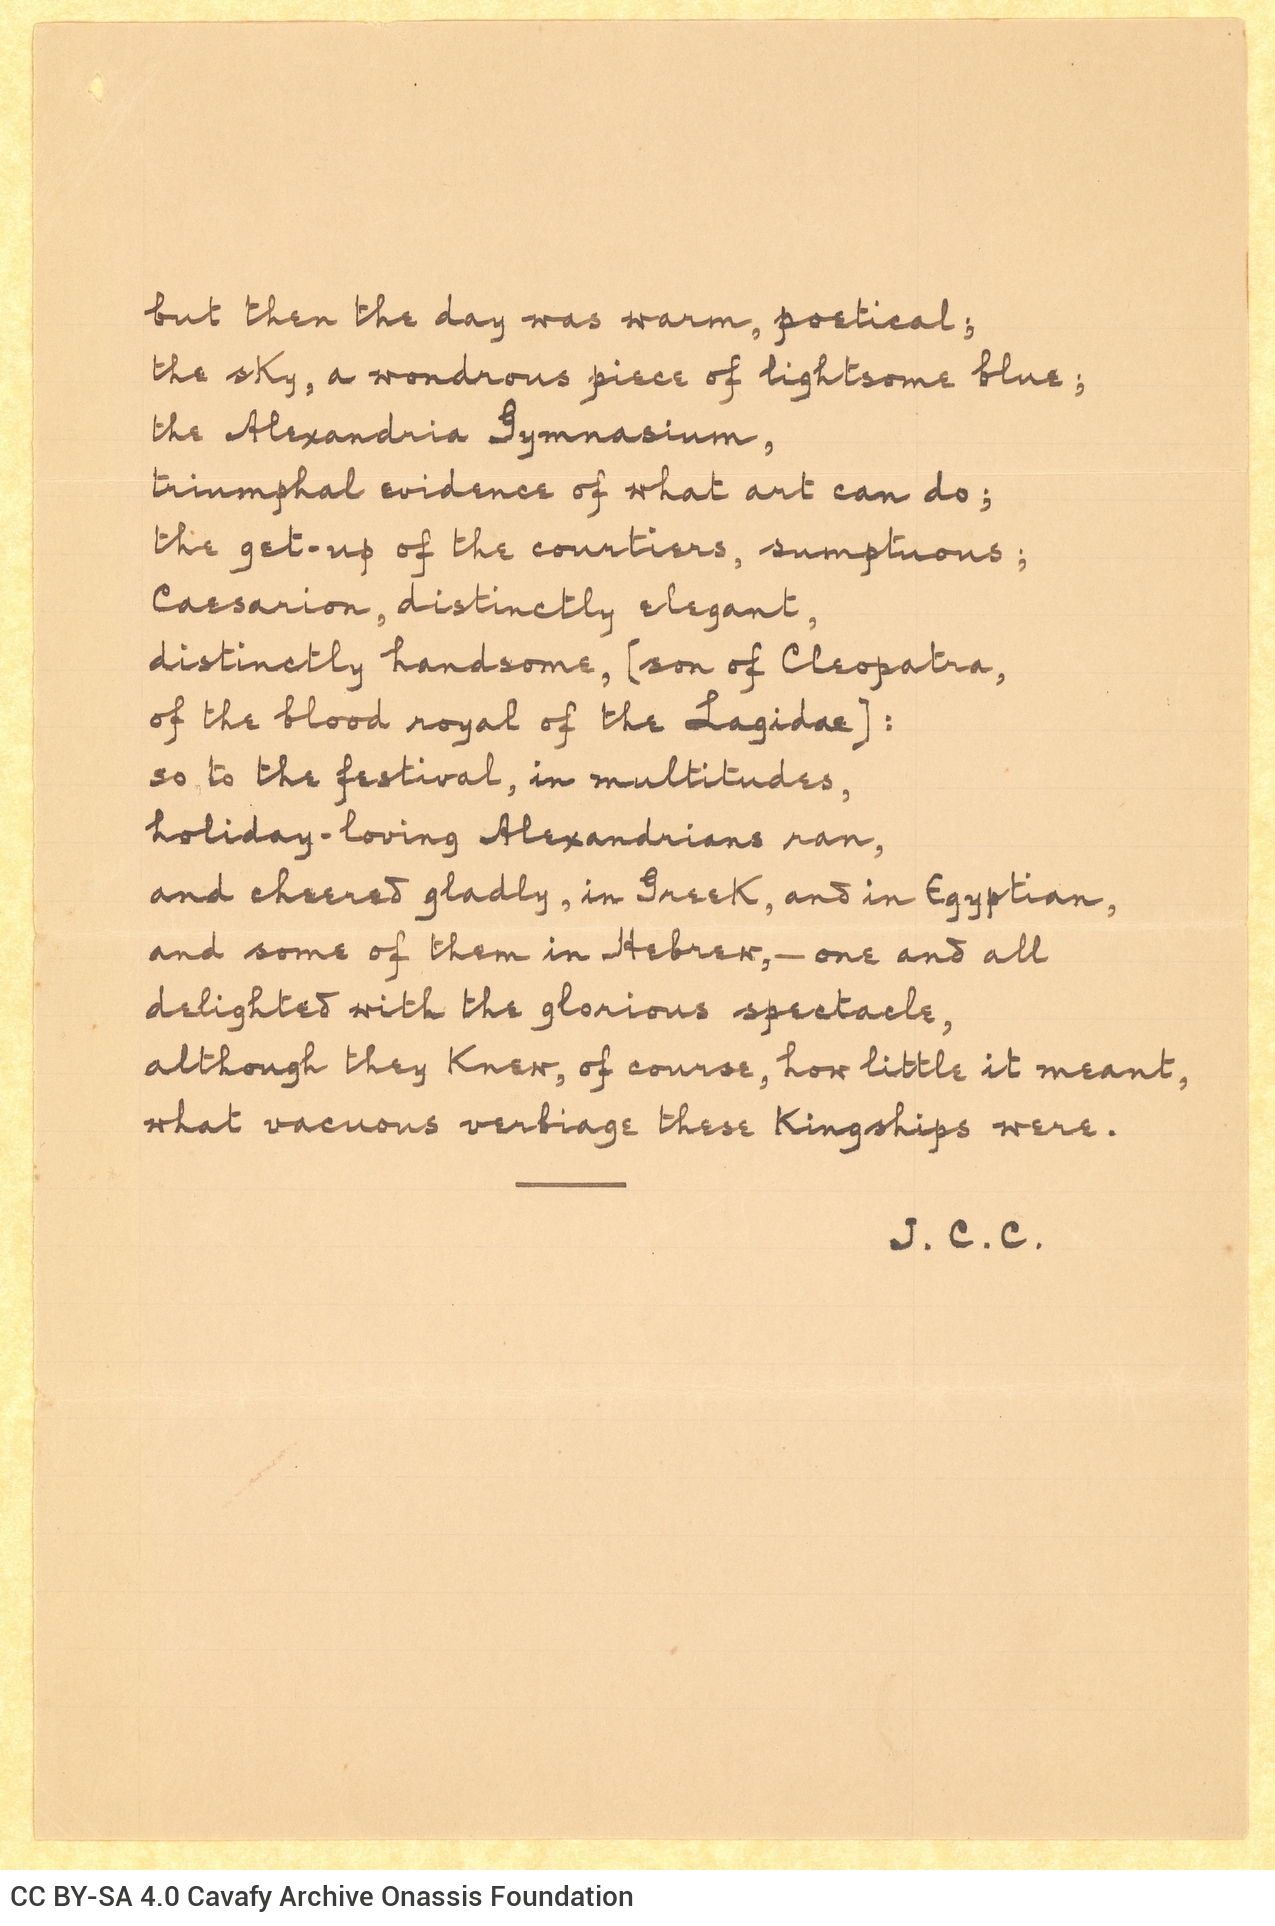 but then the day was warm, poetical;
the sky, a wondrous piece of lightsome blue;
the Alexandria Gymnasium,
triumphal evidence of what art can do;
the get-up of the courtiers, sumptuous;
Caesarion, distinctly elegant,
distinctly handsome, [son of Cleopatra,
of the blood royal of the Lagidae]:
so to the festival, in multitudes,
holiday-loving Alexandrians ran,
and cheered gladly, in Greek, and in Egyptian,
and some of them in Hebrew,— one and all
delighted with the glorious spectacle,
although they knew, of course, how little it meant,
what vacuous verbiage these Kingships were.
J. C. C.
CC BY-SA 4.0 Cavafy Archive Onassis Foundation